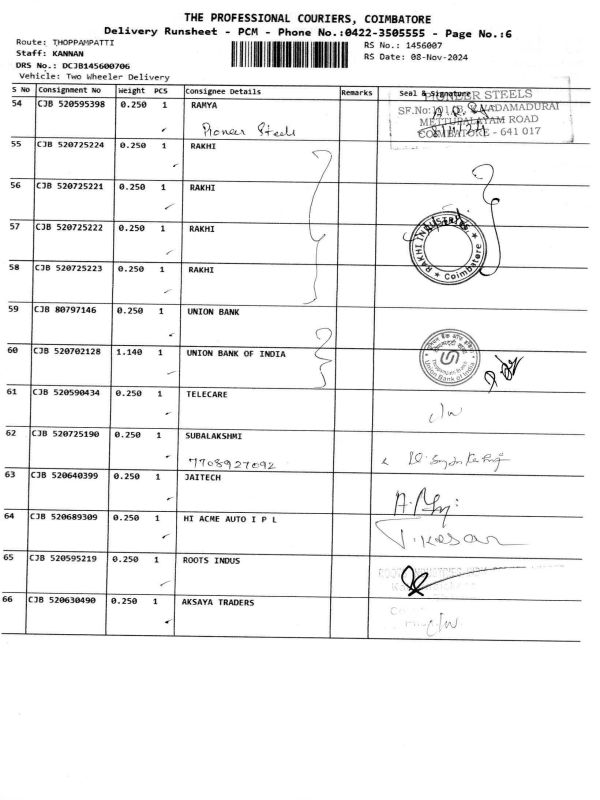 THE PROFESSIONAL COURIERS, COIMBATORE
Delivery Runsheet - PCM - Phone No.:0422-3505555 - Page No.:6
Route: THOPPAMPATTI
Staff: KANNAN
DRS No.: DCJB145600706
Vehicle: Two Wheeler Delivery
RS No.: 1456007
RS Date: 08-Nov-2024
S No Consignment No Weight PCS Consignee Details Remarks Seal & Signature
54 CJB 520595398 0.250 1 RAMYA
Pioneer Steels
PIONEER STEELS
METTUPALAYAM ROAD
COIMBATORE - 641 017
55 CJB 520725224 0.250 1 RAKHI
56 CJB 520725221 0.250 1 RAKHI
57 CJB 520725222 0.250 1 RAKHI
RAKHI INDUSTRIES ★ Coimbatore ★
58 CJB 520725223 0.250 1 RAKHI
59 CJB 80797146 0.250 1 UNION BANK
60 CJB 520702128 1.140 1 UNION BANK OF INDIA
Union Bank of India
61 CJB 520590434 0.250 1 TELECARE
c/w
62 CJB 520725190 0.250 1 SUBALAKSHMI
7708927092
63 CJB 520640399 0.250 1 JAITECH
64 CJB 520689309 0.250 1 HI ACME AUTO I P L
T.kesar
65 CJB 520595219 0.250 1 ROOTS INDUS
66 CJB 520630490 0.250 1 AKSAYA TRADERS
c/w